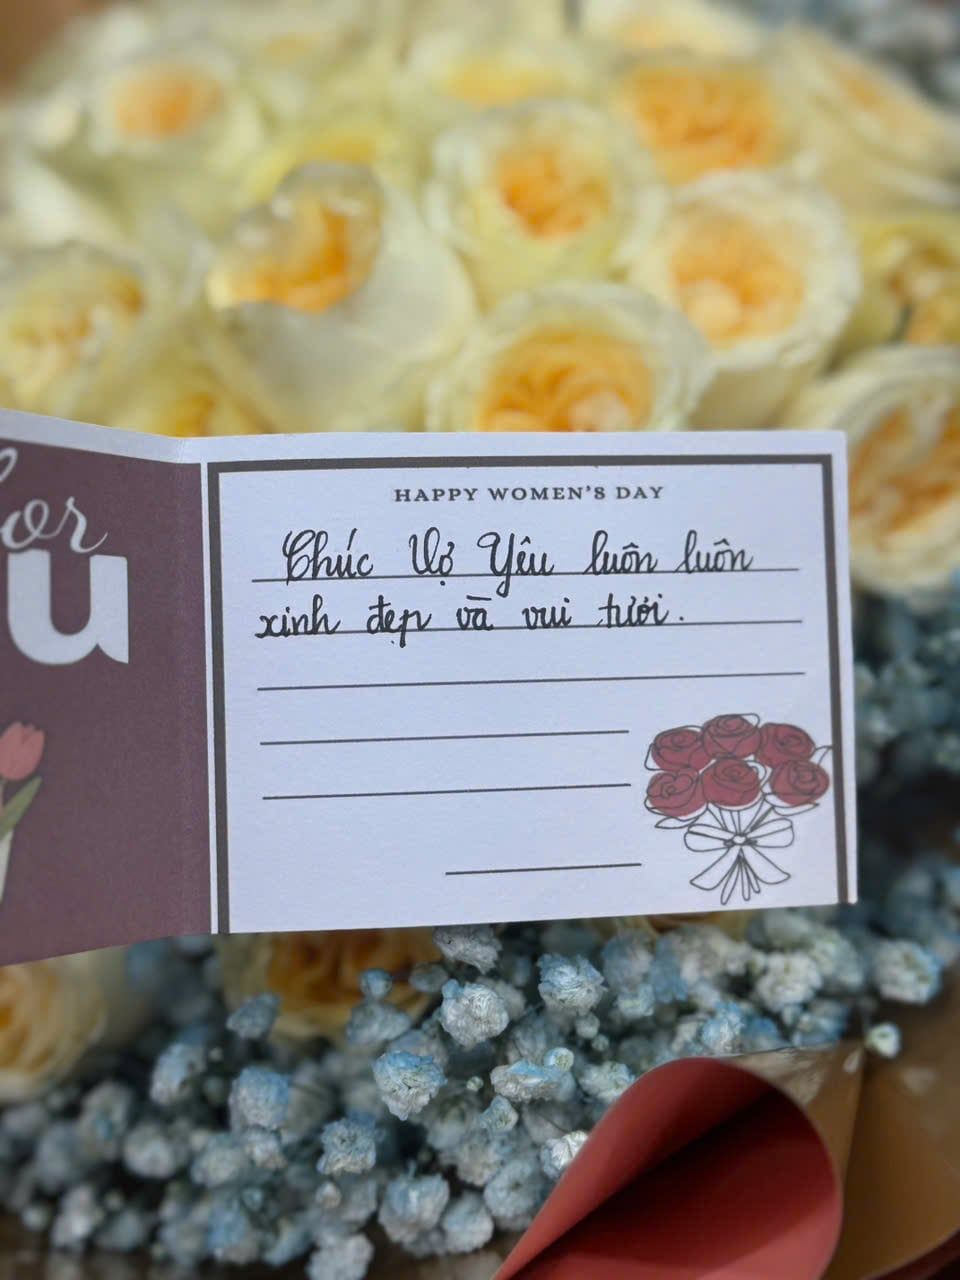 or
u
HAPPY WOMEN'S DAY
Chúc Vợ Yêu luôn luôn
xinh đẹp và vui tươi.